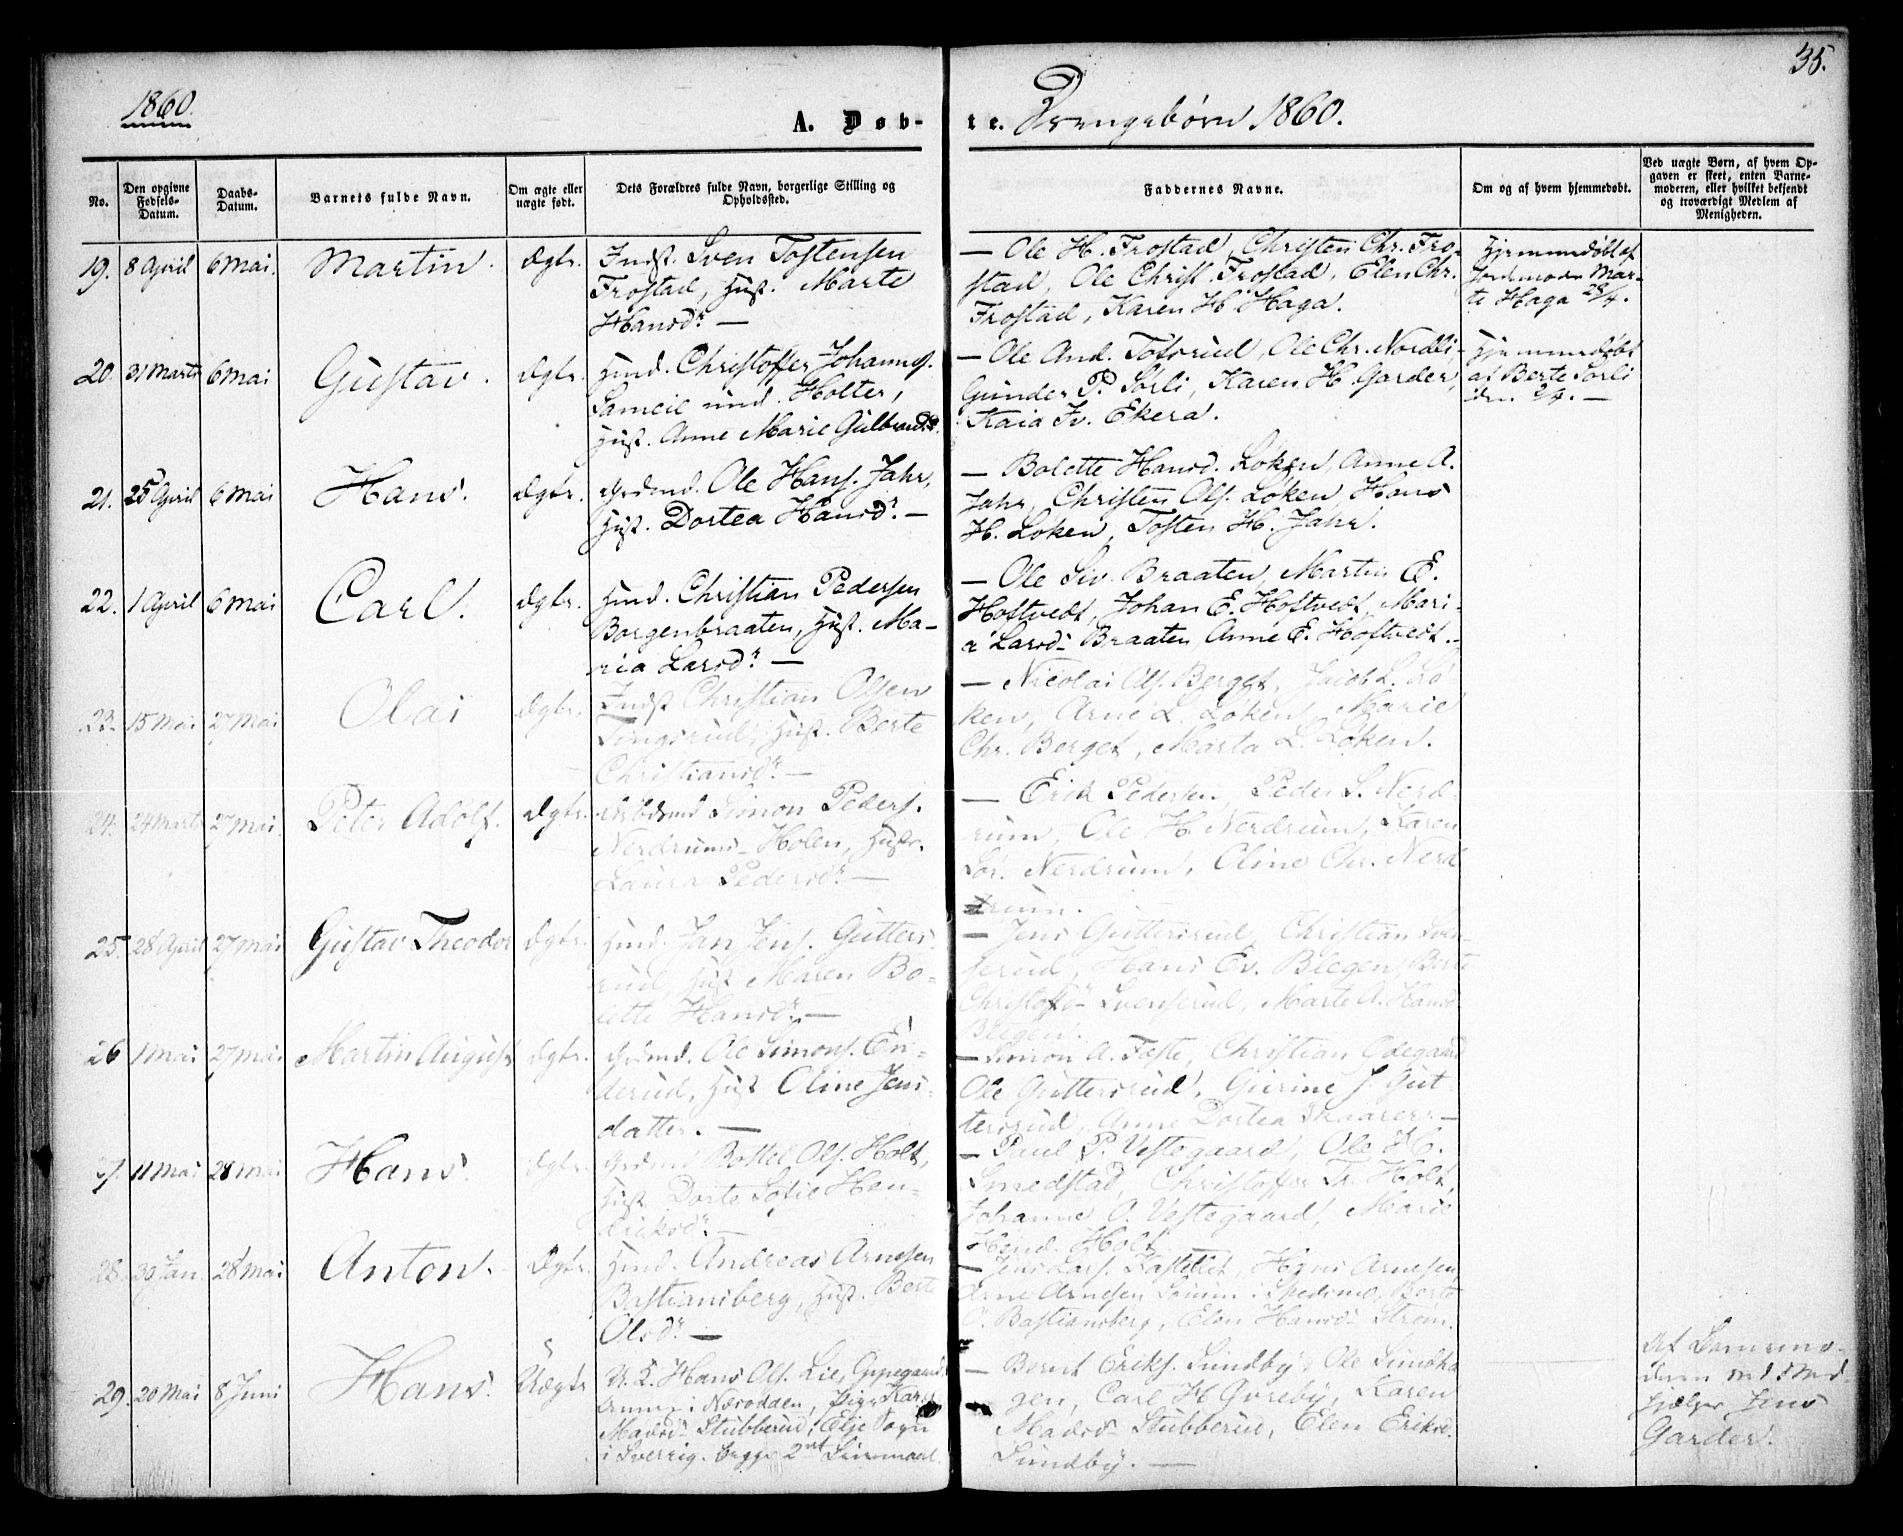 35.
1860.
A. Døb-
te. Drengebørn 1860.
No.
Den opgivne
Fødsels-
Datum.
Daabs-
Datum.
Barnets fulde Navn.
Om ægte eller
uægte født.
Dets Forældres fulde Navn, borgerlige Stilling og
Opholdssted.
Faddernes Navne.
Om og af hvem hjemmedøbt.
Ved uægte Børn, af hvem Op-
gaven er skeet, enten Barne-
moderen, eller hvilket bekjendt
og troværdigt Medlem af
Menigheden.
19. 8 April 6 Mai. Martin. Ægte.
Indst. Sven Tostensen
Frostad, Hust. Marte
Hansd. —
— Ole H. Frostad, Christen Chr. Fro-
stad, Ole Christ. Frostad, Elen Chr.
Frostad, Karen H. Haga.
Hjemmedøbt af
Jordmoder Mar-
te Haga 28/4.
20. 31 Marts 6 Mai Gustav. Ægte.
Husmd. Christoffer Johannes.
Holter,
Hust. Anne Marie Gulbrandsd.
— Ole And. Tofsrud, Ole Chr. Nordli-
Gunder P. Sørli, Karen H. Garder,
Kaia Iv. Ekera.
Hjemmedøbt
af Berte Sørli
den 2/4. —
21. 25 April 6 Mai Hans. Ægte.
Grdmd. Ole Hans. Jahr,
Hust. Dortea Hansd. —
— Bolette Hansd. Løken, Anne A.
Jahr, Christen Ols. Løken, Hans
H. Løken, Tosten H. Jahr.
22. 1 April 6 Mai Carl. Ægte.
Husmd. Christian Pedersen
Borgenbraaten, Hust. Ma-
ria Larsd. —
— Ole Siv. Braaten, Martin E.
Hoftvedt, Johan E. Hoftvedt, Mari-
a Larsd. Braaten, Anne E. Hoftvedt.
23. 15 Mai 27 Mai Olai Ægte.
Indst Christian Olsen
Tingsrud, Hust. Berte
Christiansd. —
— Nicolai Ols. Berget, Jacob L. Lø-
ken, Arne L. Løken, Marie
Chr. Berget, Marta L. Løken.
24. 24 Marts 27 Mai. Peter Adolf. Ægte.
Arbdsmd Simon Peders.
Nerdrums-Holen, Hustr.
Laura Pedersd. —
— Erik Pedersen, Peder S. Nerd-
rum, Ole H. Nerdrum, Karen
Lor. Nerdrum, Oline Chr. Nerd
rum.
25. 28 April 27 Mai Gustav Theodor Ægte.
Husmd. Jan Jens. Gutters-
rud, Hust Maren Bo-
lette Hansd. —
— Jens Guttersrud, Christian Sven-
serud, Hans Ev. Blegen, Berte
Christoffd. Svenserud, Marte A. Hansd.
Blegen.
26 1 Mai 27 Mai Martin August Ægte.
Grdmd. Ole Simons. En-
derud, Hust Oline Jens
datter. —
— Simon A. Faste, Christian Ødegaard
Ole Guttersrud, Gurine J. Gut
tersrud, Anne Dortea —
27. 11 Mai 28 Mai Hans. Ægte.
Grdmd Bottel Ols. Holt,
Hust. Dorte Sofie Hen-
riksd. —
— Paul P. Vestegaard, Ole H.
Smedstad, Christoffer Tr. Holt,
Johanne O. Vestegaard, Marie
Hend. Holt.
28. 30 Jan. 28 Mai Anton. Ægte.
Husmd. Andreas Arnesen
Bastiansberg, Hust. Berte
Olsd. —
— Jens Lars. Kastellet, Hans Arnesen
Arne Arnesen, Berte
O. Bastiansberg, Elen Hansd. Strøm.
29. 20 Mai 8 Juni Hans. Uægte
U.K. Hans Ols. Lie,
i Næsodden, Pige Karen
Madsd. Stubberud, Elje Sogn
i Sverrig. begge 2det Leiermaal.
— Bernt Eriks. Sundby, Ole Sundha
gen, Carl H. Gyreby, Karen
Madsd. Stubberud, Elen Eriksd.
Sundby. —
Af Barnemo-
deren ved Med-
hjælper Jens
Garder.